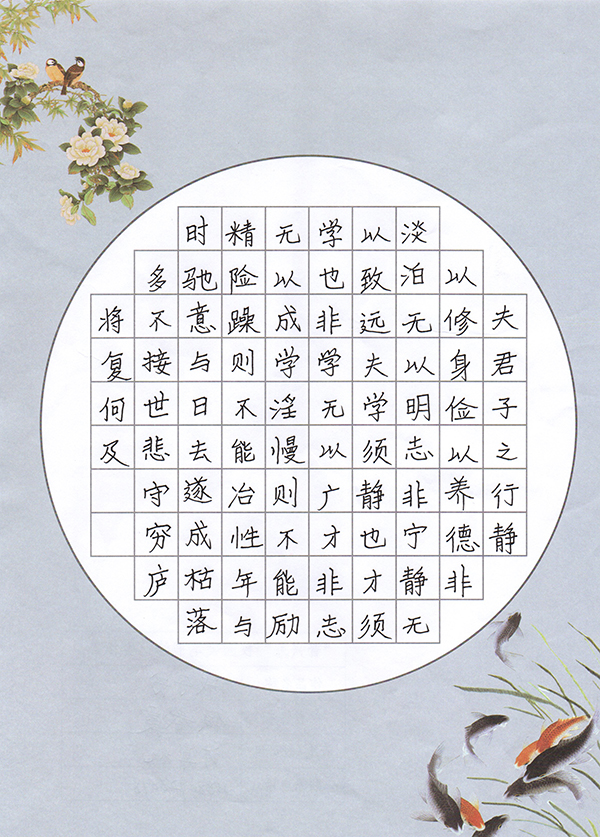 夫君子之行静
以修身俭以养德非
淡泊无以明志非宁静无
以致远夫学须静也才须
学也非学无以广才非志
无以成学淫慢则不能励
精险躁则不能冶性年与
时驰意与日去遂成枯落
多不接世悲守穷庐
将复何及